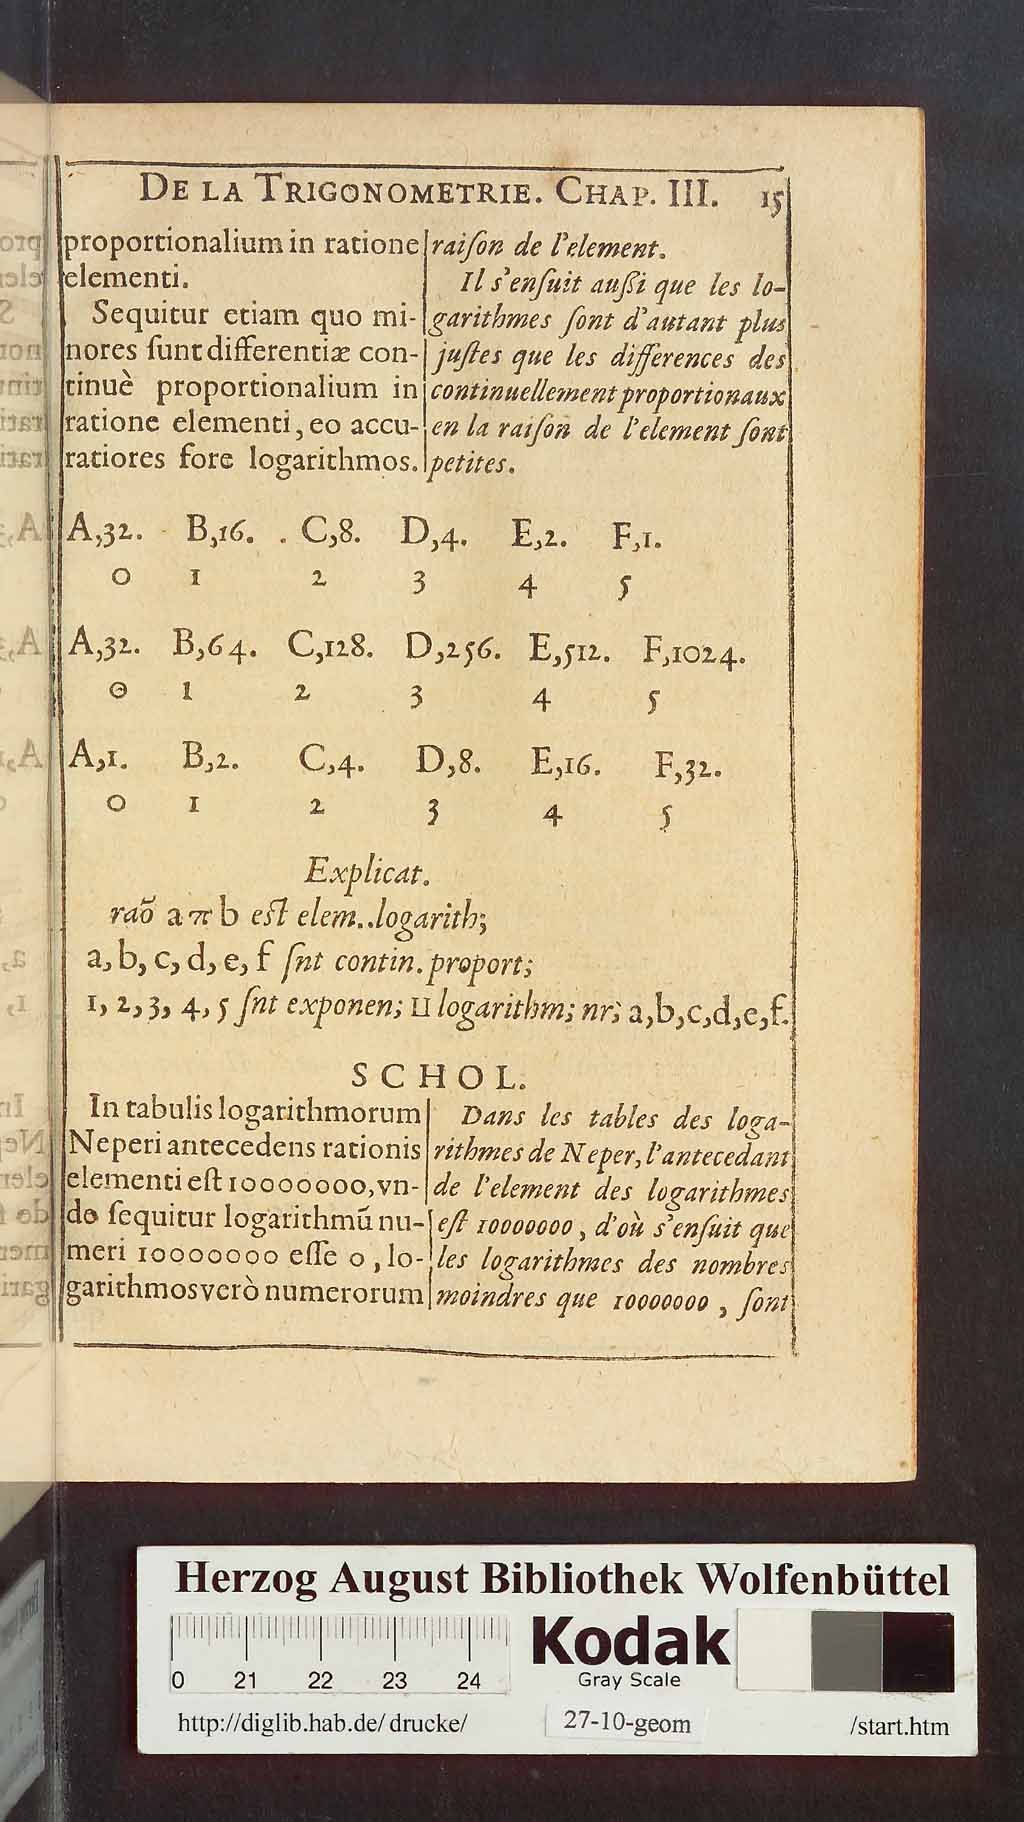 DE LA TRIGONOMETRIE. CHAP. III. 15
proportionalium in ratione
elementi.
Sequitur etiam quo mi-
nores ſunt differentiæ con-
tinuè proportionalium in
ratione elementi, eo accu-
ratiores fore logarithmos.
raiſon de l'element.
Il s'enſuit außi que les lo-
garithmes ſont d'autant plus
juſtes que les differences des
continuellement proportionaux
en la raiſon de l'element ſont
petites.
A,32. B,16. C,8. D,4. E,2. F,1.
0 1 2 3 4 5
A,32. B,64. C,128. D,256. E,512. F,1024.
0 1 2 3 4 5
A,1. B,2. C,4. D,8. E,16. F,32.
0 1 2 3 4 5
Explicat.
raõ a π b eſt elem..logarith;
a, b, c, d, e, f ſnt contin. proport;
1, 2, 3, 4, 5 ſnt exponen; II logarithm; nr; a,b,c,d,e,f.
SCHOL.
In tabulis logarithmorum
Neperi antecedens rationis
elementi eſt 10000000, vn-
de ſequitur logarithmũ nu-
meri 10000000 eſſe 0, lo-
garithmos verò numerorum
Dans les tables des loga-
rithmes de Neper, l'antecedant
de l'element des logarithmes
eſt 10000000, d'où s'enſuit que
les logarithmes des nombres
moindres que 10000000, ſont
Herzog August Bibliothek Wolfenbüttel
0 21 22 23 24
Kodak
Gray Scale
http://diglib.hab.de/drucke/ 27-10-geom /start.htm